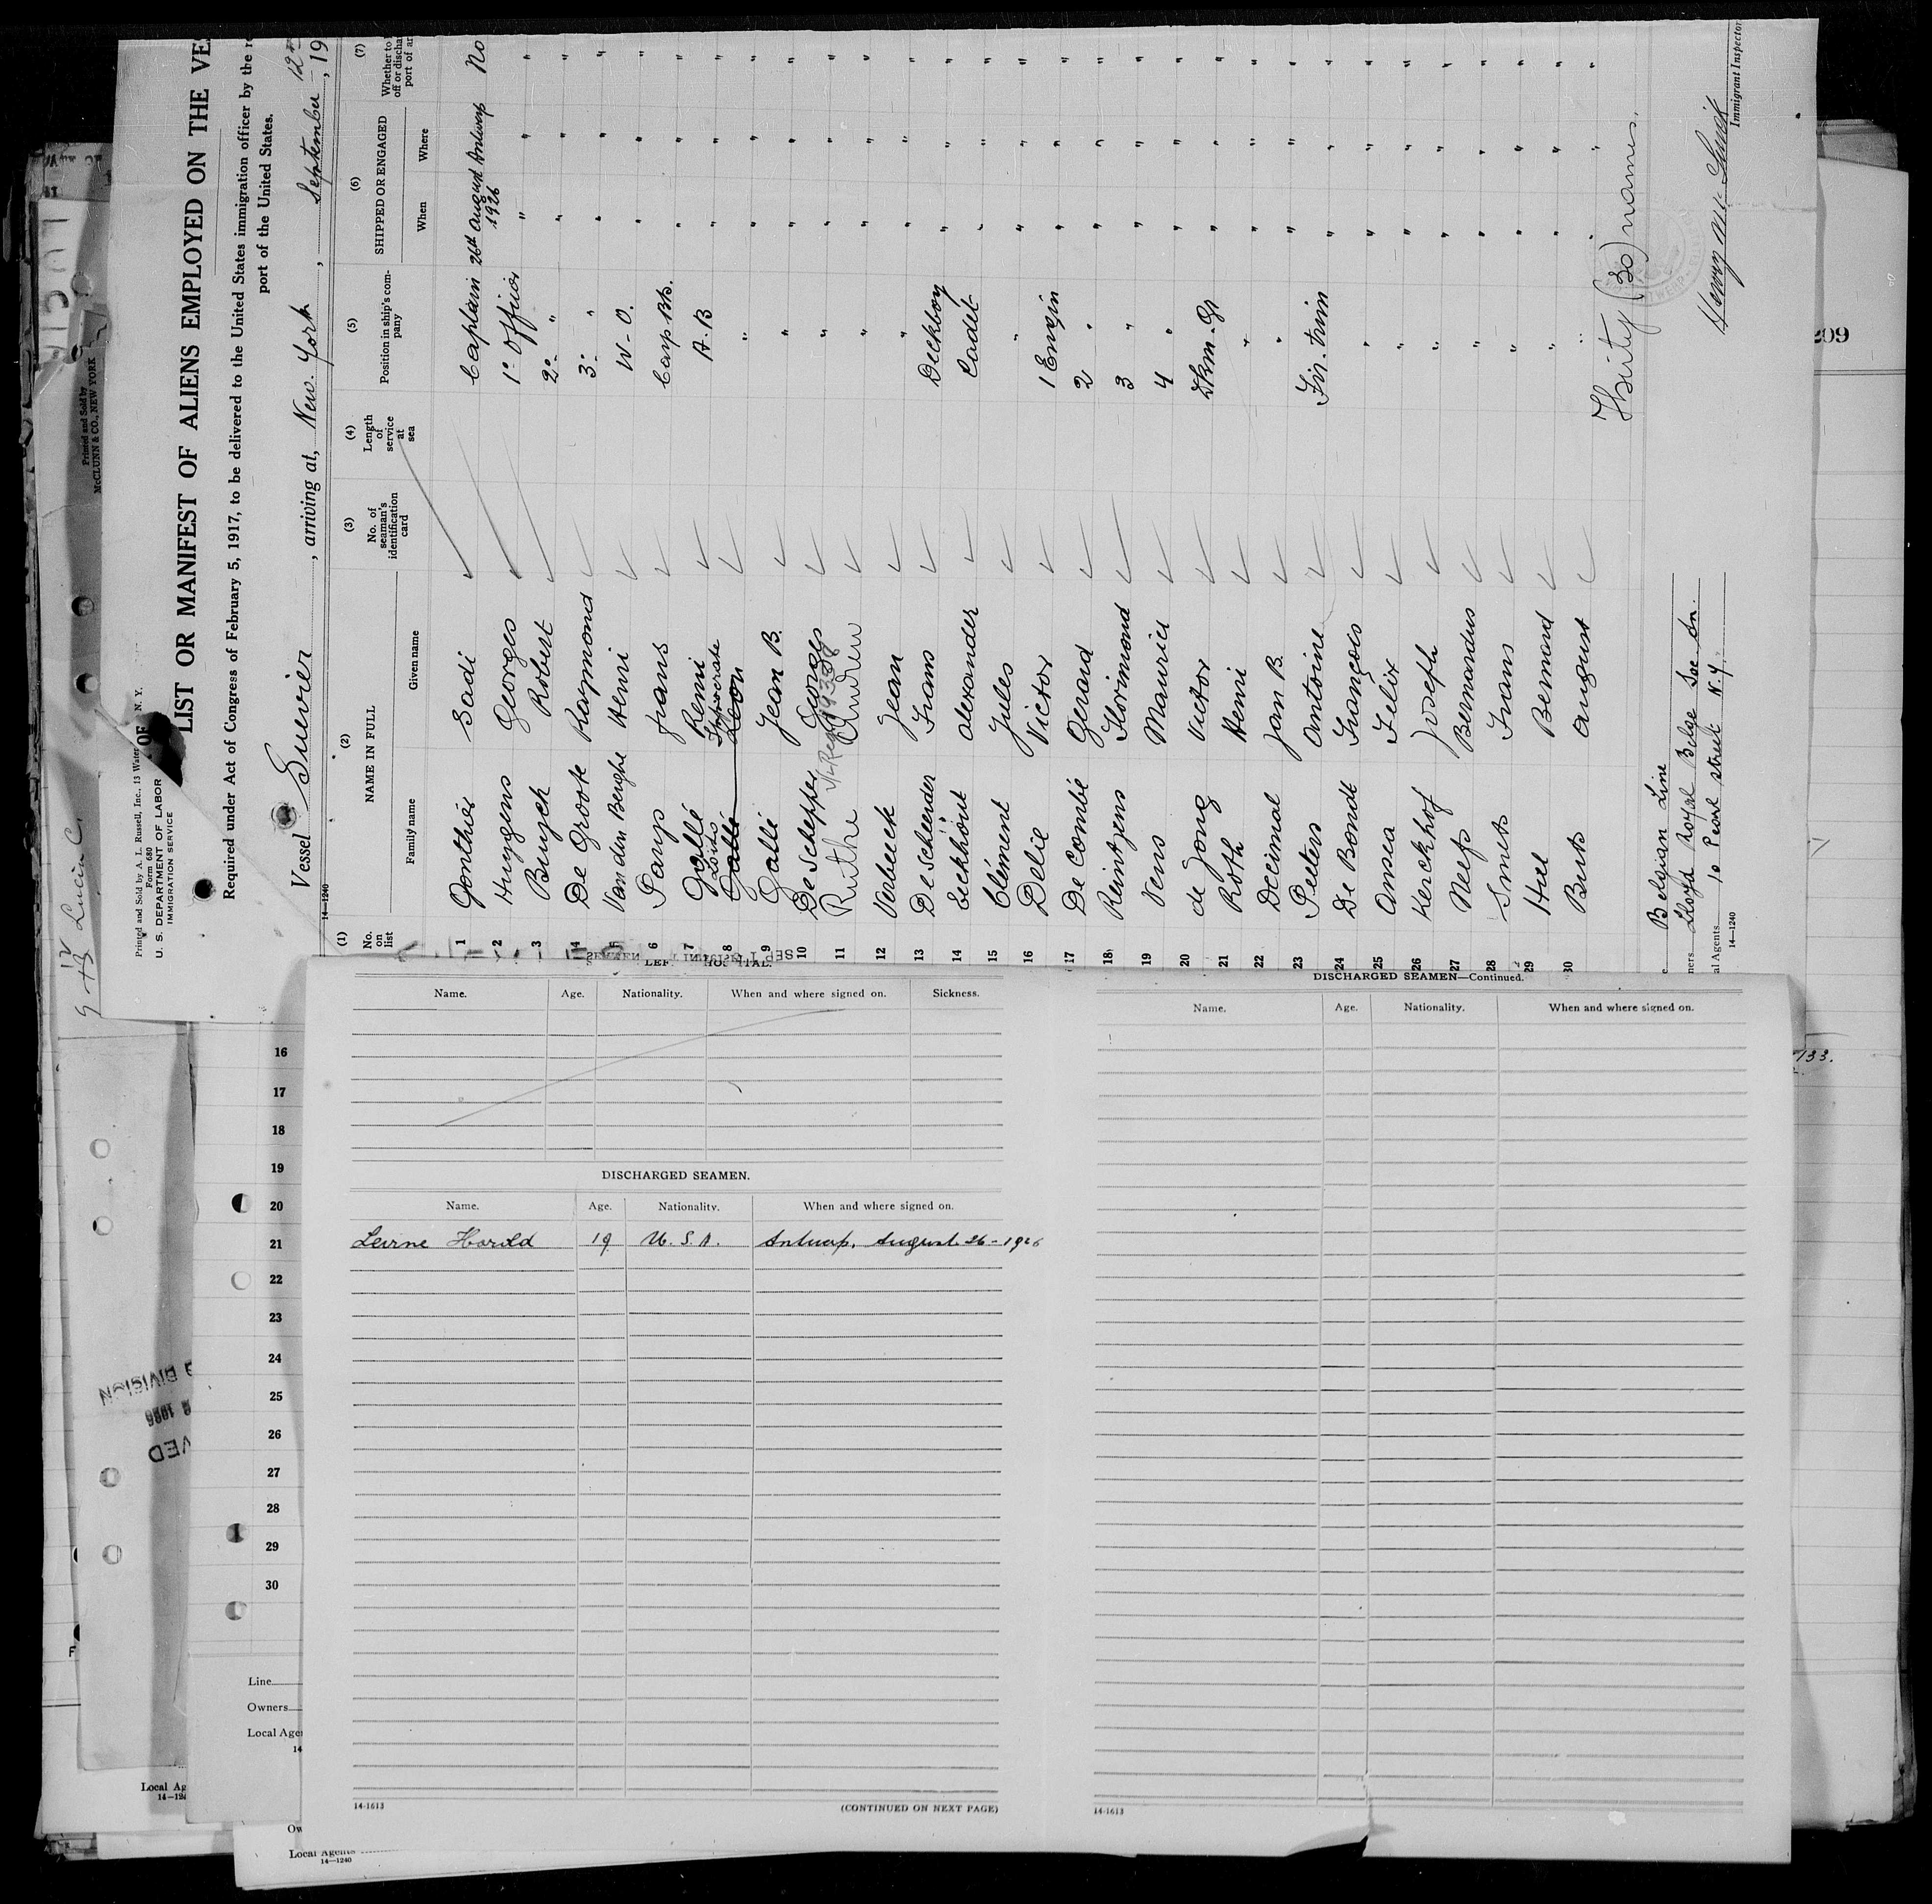 Printed and Sold by A. L. Russell, Inc., 13 Water
OF N. Y.
Form 680
U. S. DEPARTMENT OF LABOR
IMMIGRATION SERVICE
Printed and Sold by
McCLUNN & CO., NEW YORK
LIST OR MANIFEST OF ALIENS EMPLOYED ON THE VE
Required under Act of Congress of February 5, 1917, to be delivered to the United States immigration officer by the
port of the United States.
Vessel Suevier, arriving at, New. York, September 12, 19
14—1240
(1) (2) (3) (4) (5) (6) (7)
No. on list
NAME IN FULL
Family name Given name
No. of seaman's identification card
Length of service at sea
Position in ship's company
SHIPPED OR ENGAGED
When Where
Whether to
off or discha
port of ar
1 Gonthier Sadi Captain 26th August 1926 Antwerp No
2 Huygens Georges 1° Officier " " "
3 Busch Robert 2° " " " "
4 De Groote Raymond 3° " " " "
5 Van den Berghe Henri W-O. " " "
6 Saurs Frans Carp. " " "
7 Gallé Remi A.B " " "
8 Gallé Leon " " " "
9 Gallé Jean B. " " " "
10 De Schepper Georges " " " "
11 Ruthe Andrew " " " "
12 Verbeeck Jean " " " "
13 De Scheerder Frans Deckboy " " "
14 Eeckhout Alexander Cadet " " "
15 Clément Jules " " " "
16 Delie Victor 1 Engin " " "
17 De Combé Gerard 2 " " " "
18 Reintjens Florimond 3 " " " "
19 Vens Maurice 4 " " " "
20 de Jong Victor Dkm-Gr " " "
21 Roth Henri " " " "
22 Decimal Jan B. " " " "
23 Peeters Antoine Fir. trim " " "
24 De Bondt François " " " "
25 Amsea Felix " " " "
26 Kerckhof Joseph " " " "
27 Neefs Bernardus " " " "
28 Smets Frans " " " "
29 Hul Bernard " " " "
30 Buts August " " " "
Thirty (30) names.
Belgian Line
ners Lloyd Royal Belge Soc An.
al Agents 10 Pearl street N.Y.
14—1240
Immigrant Inspector
209
133.
Name. Age. Nationality. When and where signed on. Sickness.
DISCHARGED SEAMEN.
Name. Age. Nationality. When and where signed on.
Levine Harold 19 U.S.A. Antwerp, August 26-1926
14-1613
(CONTINUED ON NEXT PAGE)
DISCHARGED SEAMEN—Continued.
Name. Age. Nationality. When and where signed on.
14-1613
16
17
18
19
20
21
22
23
24
25
26
27
28
29
30
Line
Owners
Local Age
14
DIVISION
1926
VED
Local Ag
14—124
Ow
Local Agents
14—1240